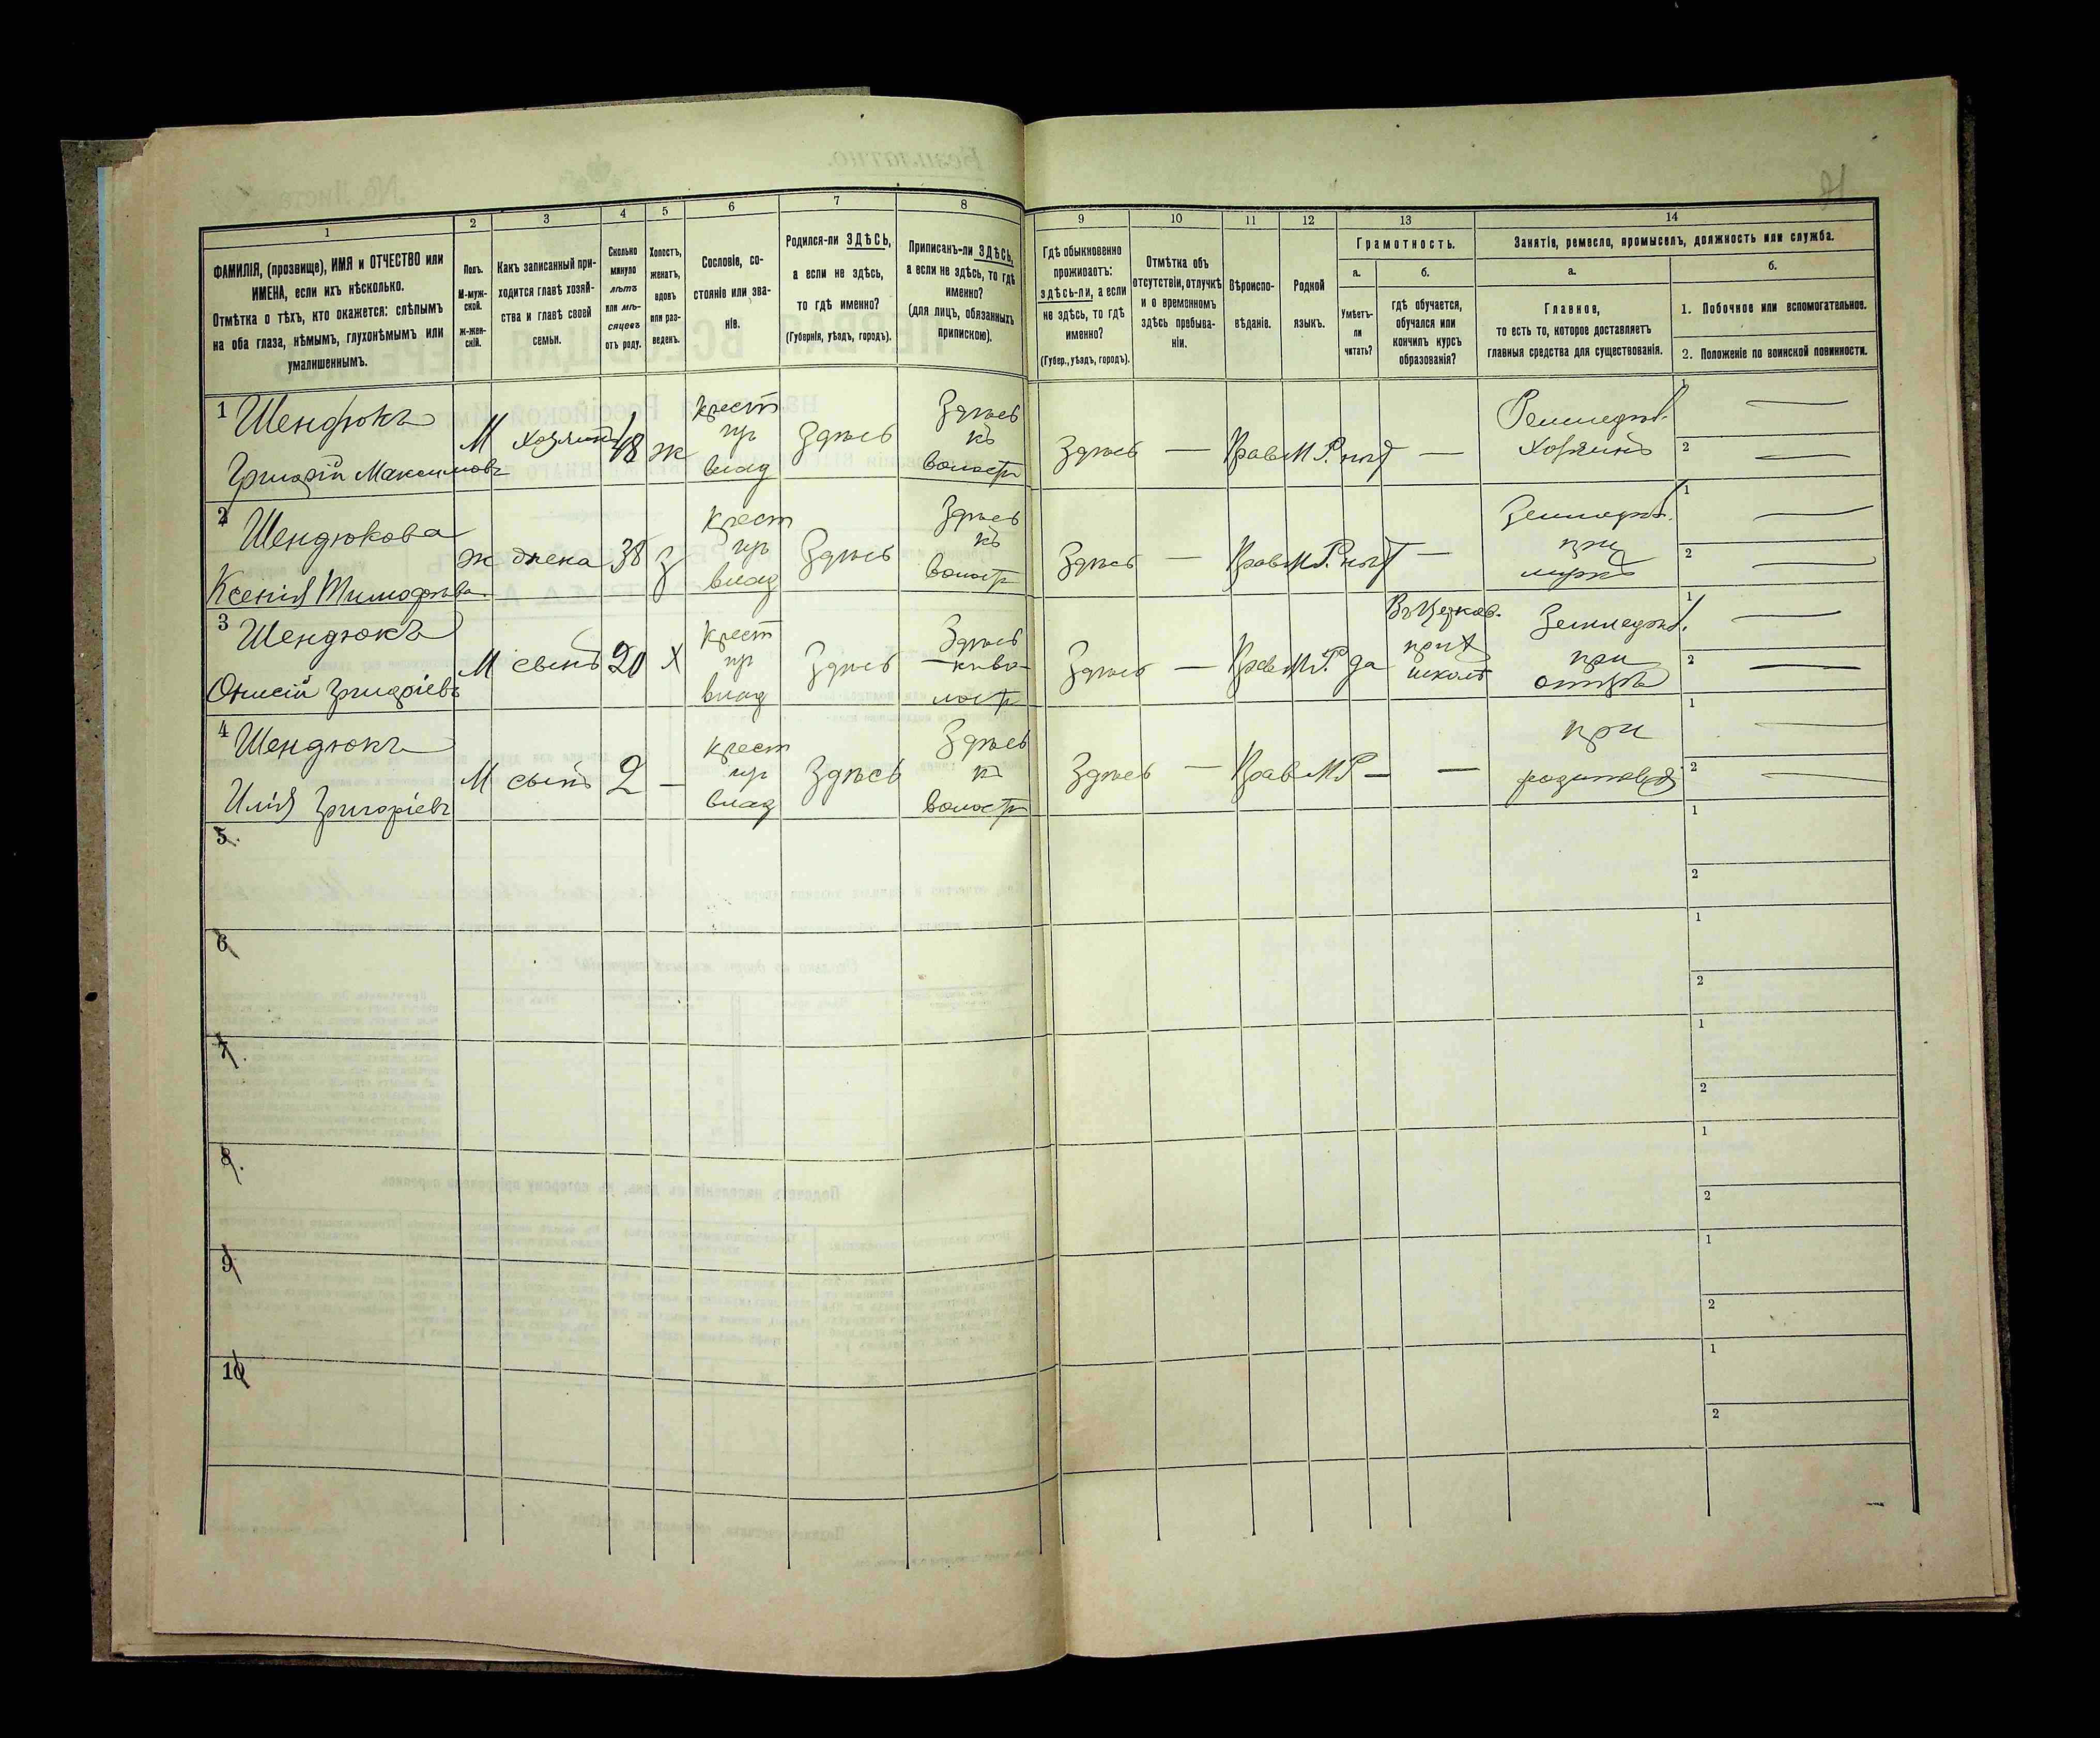 1
2
3
4
5
6
7
8
9
10
11
12
13
14
ФАМИЛІЯ, (прозвище), ИМЯ и ОТЧЕСТВО или
ИМЕНА, если ихъ нѣсколько.
Отмѣтка о тѣхъ, кто окажется: слѣпымъ
на оба глаза, нѣмымъ, глухонѣмымъ или
умалишеннымъ.
Полъ.
М-муж-
ской.
Ж-жен-
скій.
Какъ записанный при-
ходится главѣ хозяй-
ства и главѣ своей
семьи.
Сколько
минуло
лѣтъ
или мѣ-
сяцевъ
отъ роду.
Холостъ,
женатъ,
вдовъ
или раз-
веденъ.
Сословіе, со-
стояніе или зва-
ніе.
Родился-ли ЗДѢСЬ,
а если не здѣсь,
то гдѣ именно?
(Губернія, уѣздъ, городъ).
Приписанъ-ли ЗДѢСЬ,
а если не здѣсь, то гдѣ
именно?
(для лицъ, обязанныхъ
припискою).
Гдѣ обыкновенно
проживаетъ:
здѣсь-ли, а если
не здѣсь, то гдѣ
именно?
(Губер., уѣздъ, городъ).
Отмѣтка объ
отсутствіи, отлучкѣ
и о временномъ
здѣсь пребыва-
ніи.
Вѣроиспо-
вѣданіе.
Родной
языкъ.
Грамотность.
а.
Умѣетъ-
ли
читать?
б.
гдѣ обучается,
обучался или
кончилъ курсъ
образованія?
Занятіе, ремесло, промыселъ, должность или служба.
а.
Главное,
то есть то, которое доставляетъ
главныя средства для существованія.
б.
1. Побочное или вспомогательное.
2. Положеніе по воинской повинности.
1 Шендюкъ
Григорій Максимовъ
М хозяинъ 48 ж
крест
пр
влад
Здѣсь
Здѣсь
къ
волости
Здѣсь — Прав М.Р. нѣт —
Земледѣл.
хозяинъ
1 —
2 —
2 Шендюкова
Ксенія Тимофѣева
ж жена 38 з
крест
пр
влад
Здѣсь
Здѣсь
къ
волости
Здѣсь — Прав М.Р. нѣт —
Земледѣл.
при
мужѣ
1 —
2 —
3 Шендюкъ
Онисій Григоріевъ
М сынъ 20 х
крест
пр
влад
Здѣсь
Здѣсь
къ во-
лости
Здѣсь — Прав М.Р. да
Въ Церков.
прих
школѣ
Земледѣл.
при
отцѣ
1 —
2 —
4 Шендюкъ
Илія Григоріевъ
М сынъ 2 —
крест
пр
влад
Здѣсь
Здѣсь
къ
волости
Здѣсь — Прав М.Р — —
при
родителях
1 —
2 —
5.
1
2
6
1
2
7.
1
2
8.
1
2
9
1
2
10
1
2